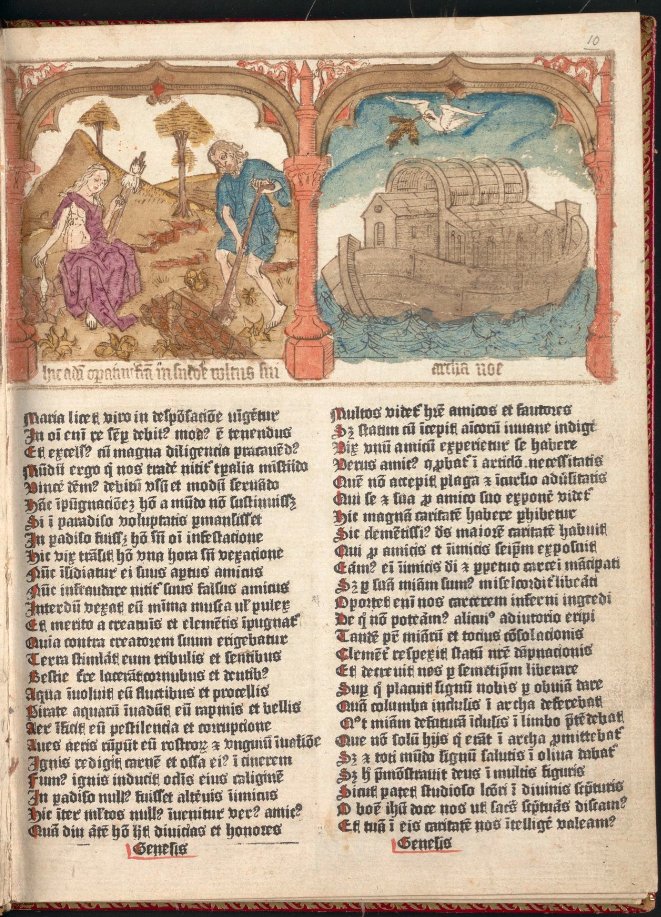 10
hic adā opatur t̄rā in sudoꝛe vultus sui
archa noe
Maria licet viro in despōsacōe uigētur
In oī enī re sēp debitꝰ modꝰ ē tenendus
Et excelsꝰ cū magna diligencia
Mūdū ergo q̄ nos nititur tpalia
Hāc īpugnacōez hō a mūdo nō sustinuissz
Si ī paradiso voluptatis pmansisset
In padiso fuissz hō sn̄ oī infestacione
Hic vix trāsit hō vna hora sn̄ vexacione
Nūc īsidiatur ei suus amicus
Nūc infraudare nitit suus falsus amicus
Interdū vexat eū mīma musca ul pulex
Et merito a creatuis et elemētis īpugnat
Quia contra creatorem suum erigebatur
Terra stimlāt eum tribulis et sentibus
Bestie lacerāt cornubus et dentibꝰ
Aqua īuoluit eū fluctibus et procellis
Pirate aquarū īuadūt eū rapinis et bellis
Aer īficit eū pestilencia et corrupcione
Aues aeris eū rostroꝝ ⁊ vnguiū
Ignis redigit carnē et ossa ei ī cinerem
Fumꝰ ignis inducit odīs eius caliginē
In padiso nullꝰ fuisset altēuis īimicus
Hic īter ml̄tos nullꝰ īuenitur verꝰ amicꝰ
Quā diu hō ht̄ diuicias et honores
Genesis
Multos videt hr̄e amicos et fautores
Sꝫ statum cū īcepit aīcorū iuuane indigē
Vix vnū amicū experietur se habere
Verus amicꝰ ꝓbat ī articlo necessitatis
Que nō accepit plaga ⁊ īcursio aduīsitatis
Qui se ⁊ sua ꝓ amico suo exponē videt
Hic magnā caritatē habere phibetur
Sic clemētissī dꝰs maiorē caritatē habuit
Qui ꝓ amicis et īimicis seipm̄ exposuit
Eāmꝰ eī īimicis dī ⁊ ppetuo carcei mācipati
Sꝫ p suā miām sumꝰ miscicordit libeāti
Oportet enī nos carcerem inferni ingredi
De q̄ nō poteāmꝰ alicuiꝰ adiutorio eripi
Tandē pē miārū et tocius cōsolacionis
Clemēt respexit statū nrē dāpnacionis
Et decreuit nos p semetipm̄ liberare
Suꝑ q̄ placuit signū nobis p oliuā dare
Quā columba inclusis ī archa deferebat
Qꝰt miām defuturā īclusis ī limbo
Que nō solū hijs q̄ erāt ī archa ꝓmittebat
Sꝫ ⁊ toti mūdo signū salutis ī oliua dabat
Sꝫ h pmōstrauit deus ī multis figuris
Sicut patet studioso lcōri ī diuinis scpturis
O bone ihū doce nos ut sacrꝭ scptuās discamꝰ
Et tuā ī eis caritatē nos ītelligē valeamꝰ
Genesis